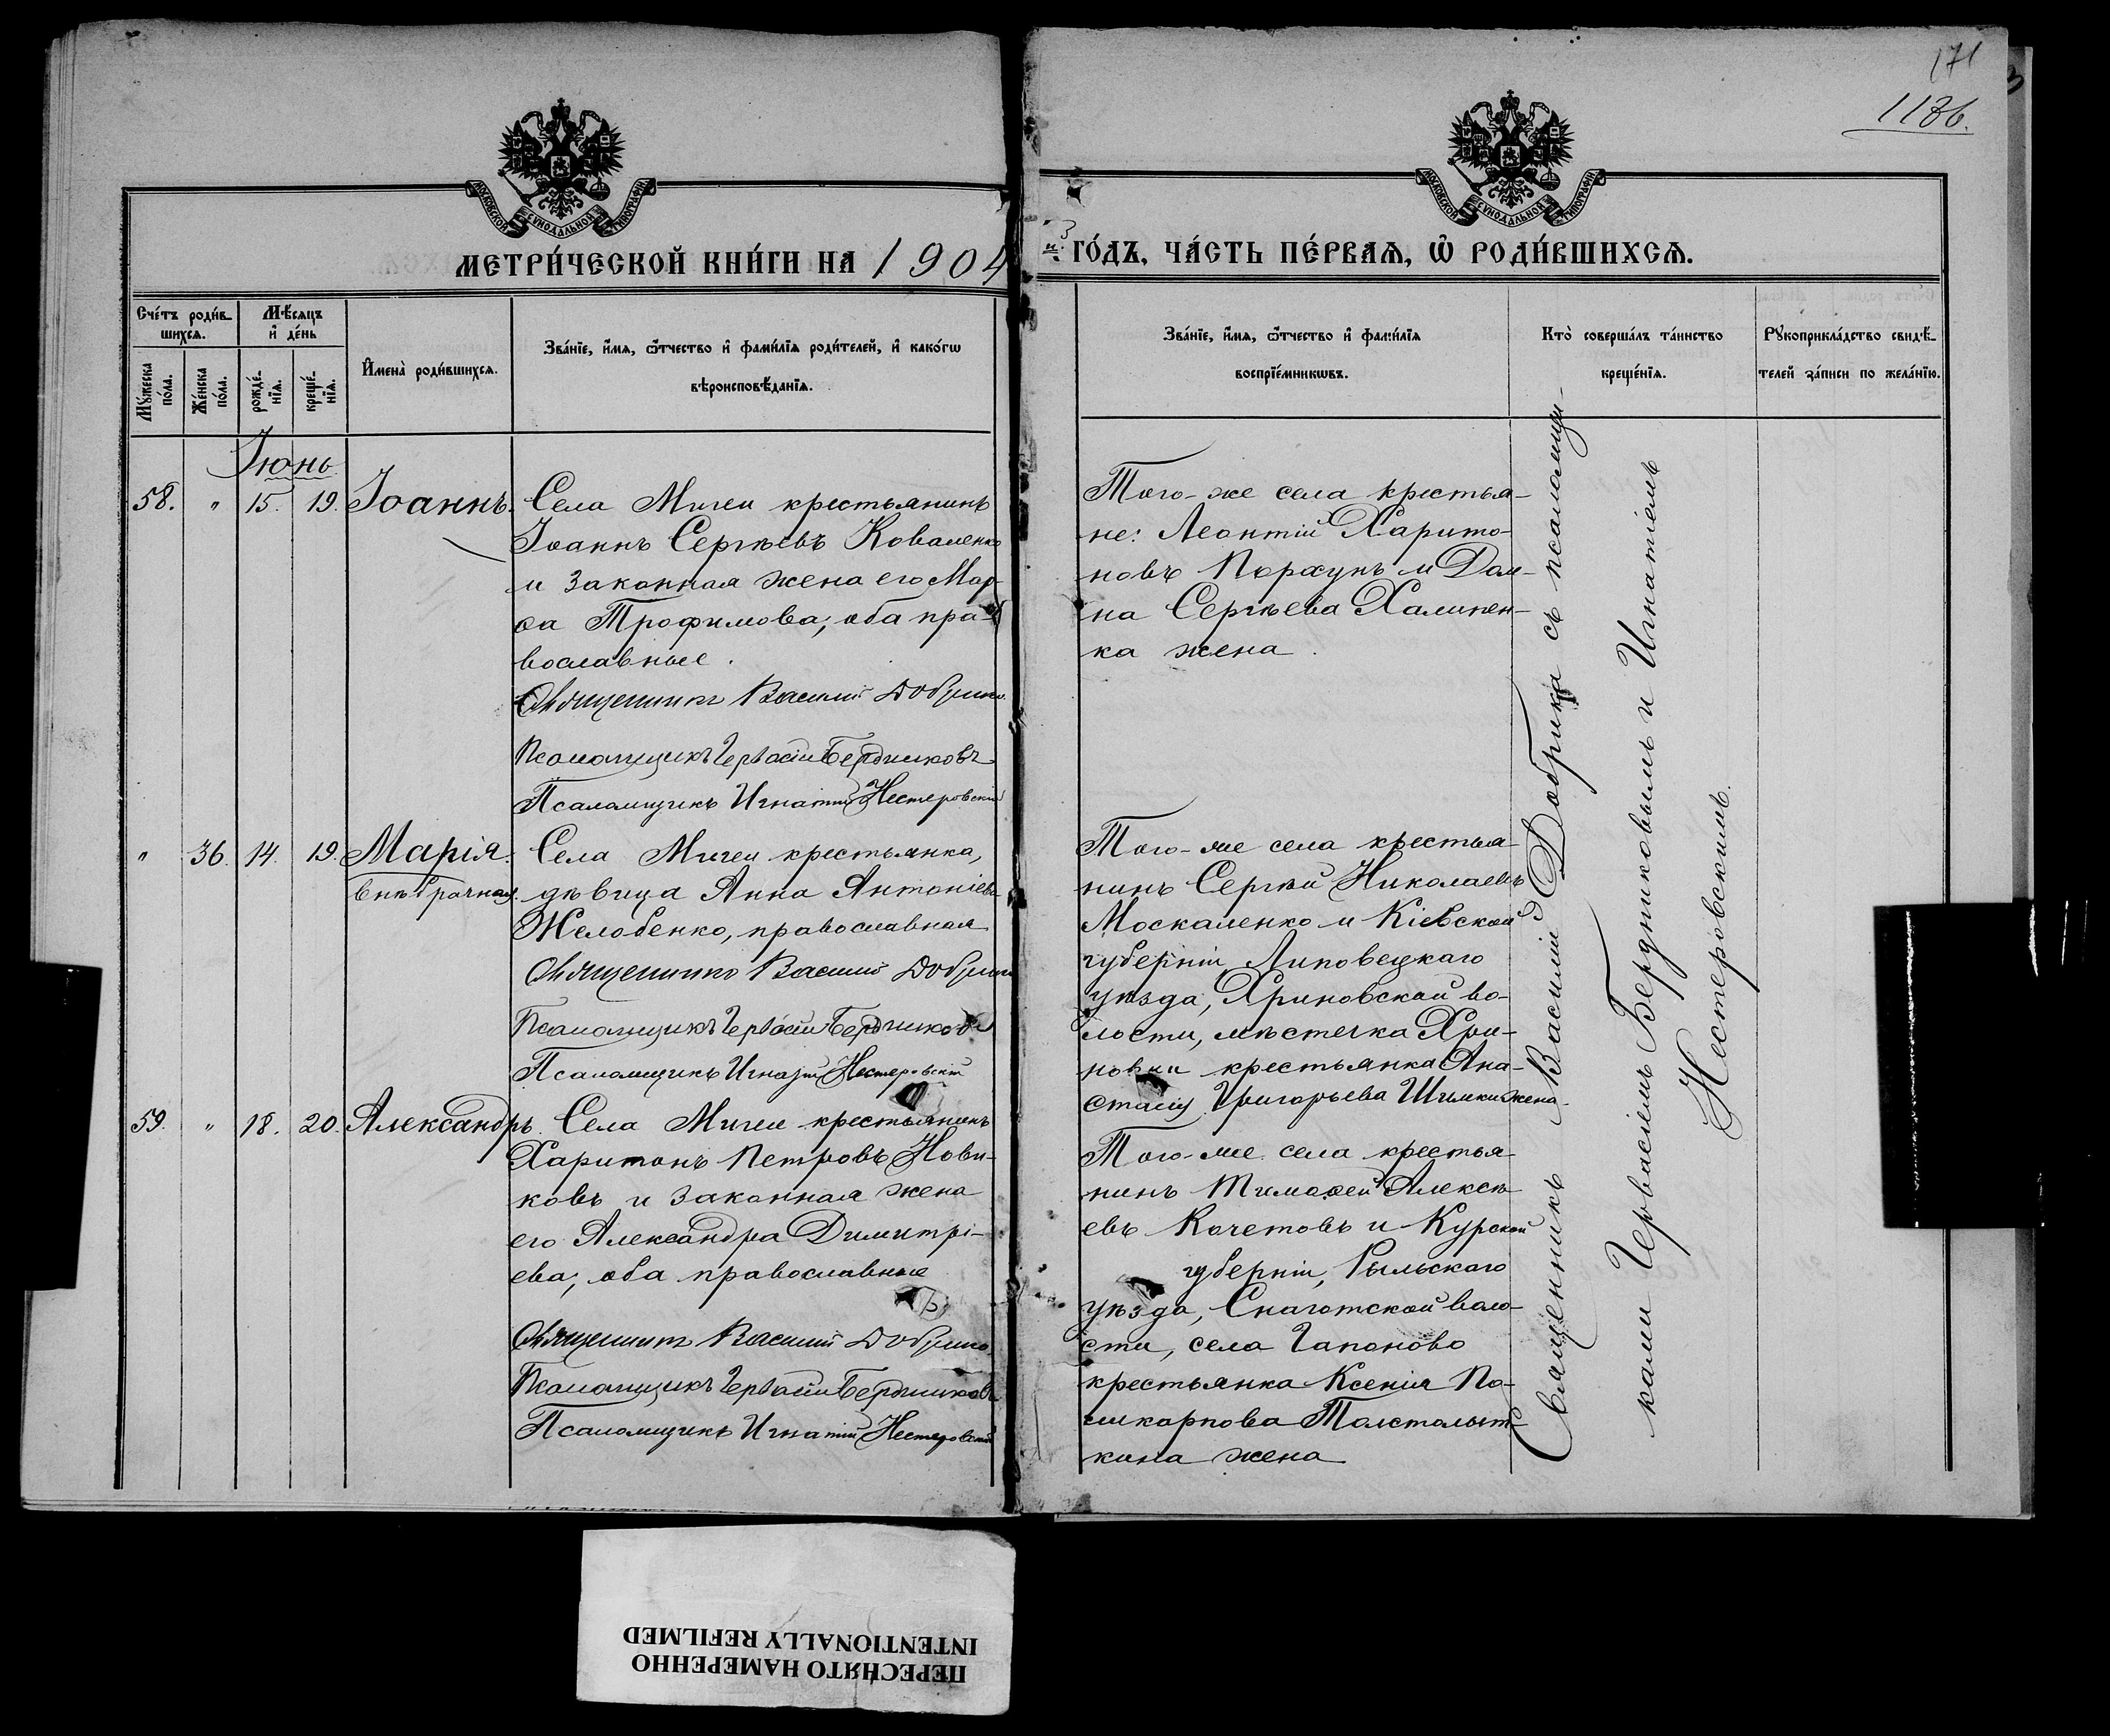 171
1136.
МОСКОВСКОЙ СУНОДАЛЬНОЙ ТИПОГРАФІИ
МОСКОВСКОЙ СУНОДАЛЬНОЙ ТИПОГРАФІИ
МЕТРИ́ЧЕСКОЙ КНИ́ГИ НА 1904
ГО́ДЪ, ЧА́СТЬ ПЕ́РВАѦ, Ѽ РОДИ́ВШИХСѦ.
Сче́тъ роди́в-
шихсѧ.
Мꙋ́жеска по́ла.
Же́нска по́ла.
Мѣ́сяцъ
и҆ де́нь
рожде́-
нїѧ.
креще́-
нїѧ.
И҆мена̀ роди́вшихсѧ.
Зва́нїе, и҆́мѧ, ѻ҆́тчество и҆ фами́лїѧ роди́телей, и҆ како́гѡ
вѣроисповѣ́данїѧ.
Зва́нїе, и҆́мѧ, ѻ҆́тчество и҆ фами́лїѧ
воспрїе́мникѡвъ.
Кто̀ соверша́лъ та́инство
креще́нїѧ.
Рꙋкоприкла́дство свидѣ́-
телей за́писи по жела́нїю.
Іюнь
58. " 15. 19. Іоаннъ. Села Мигеи крестьянинъ
Іоаннъ Сергѣевъ Коваленко
и законная жена его Мар-
ѳа Трофимова; оба пра-
вославные.
Священникъ Василій Добрика
Псаломщикъ Гервасій Бердниковъ
Псаломщикъ Игнатій Нестеровскій
Того-же села крестья-
не: Леонтій Харито-
новъ Порхунъ и Дом-
на Сергѣева Халипен-
ка жена.
" 36. 14. 19. Марія. Села Мигеи крестьянка,
внѣбрачная. дѣвица Анна Антоніева
Желобенко, православная
Священникъ Василій Добрика
Псаломщикъ Гервасій Бердниковъ
Псаломщикъ Игнатій Нестеровскій
Того-же села крестья-
нинъ Сергѣй Николаевъ
Москаленко и Кіевской
губерніи, Липовецкаго
уѣзда, Хриновской во-
лости, мѣстечка Хри-
новки крестьянка Ана-
стасія Григорьева жена
59. " 18. 20. Александръ. Села Мигеи крестьянинъ
Харитонъ Петровъ Нови-
ковъ и законная жена
его Александра Димитрі-
ева; оба православные
Священникъ Василій Добрика
Псаломщикъ Гервасій Бердниковъ
Псаломщикъ Игнатій Нестеровскій
Того-же села крестья-
нинъ Тимоѳей Алексѣ-
евъ Кочетовъ и Курской
губерніи, Рыльскаго
уѣзда, Снаготской воло-
сти, села Гапоново
крестьянка Ксенія По-
ликарпова
кина жена
Священникъ Василій Добрика съ псаломщи-
ками Гервасіемъ Бердниковымъ и Игнатіемъ
Нестеровскимъ.
ПЕРЕСНЯТО НАМЕРЕННО
INTENTIONALLY REFILMED